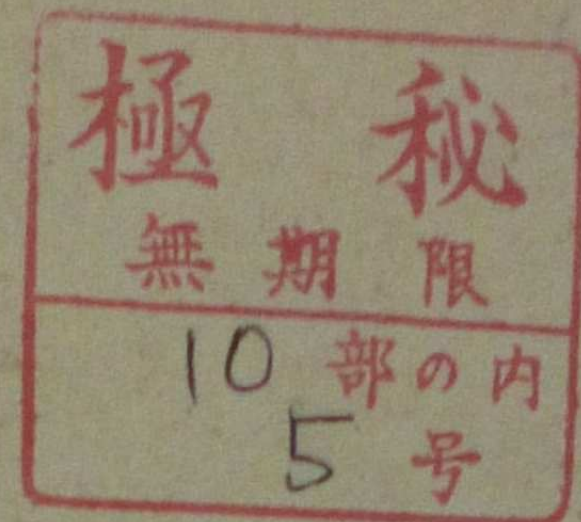 極 秘
無期限
10 部の内
5 号